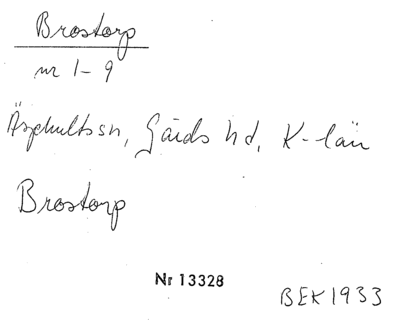 Brostorp
nr 1-9
Äsphults sn, Gärds hd, K-län
Brostorp
Nr 13328
BEK 1933